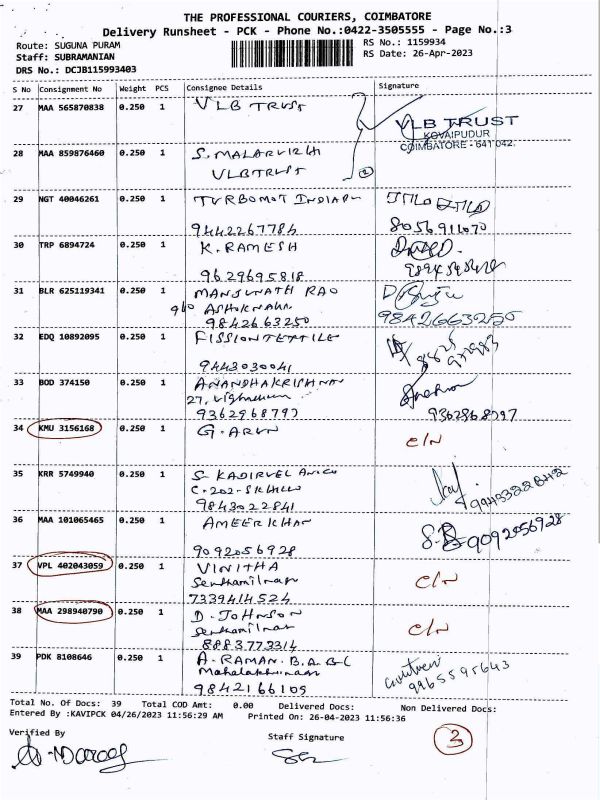 THE PROFESSIONAL COURIERS, COIMBATORE
Delivery Runsheet - PCK - Phone No.:0422-3505555 - Page No.:3
Route: SUGUNA PURAM
RS No.: 1159934
Staff: SUBRAMANIAN
RS Date: 26-Apr-2023
DRS No.: DCJB115993403
S No Consignment No Weight PCS Consignee Details Signature
27 MAA 565870838 0.250 1 VLB TRUST
VLB TRUST
KOVAIPUDUR
COIMBATORE - 641 042.
28 MAA 859876460 0.250 1 S. MALARVIZHI
VLB TRUST
2
29 NGT 40046261 0.250 1 TURBOMOT INDIA
9442267784 8056911070
30 TRP 6894724 0.250 1 K. RAMESH
9629695818
31 BLR 625119341 0.250 1 MANJUNATH RAO
ASHOKNAGAR
9842663250 9842663250
32 EDQ 10892095 0.250 1 FISSION TEXTILE
9443030041
33 BOD 374150 0.250 1 ANANDHAKRISHNAN
27,
9362968797
34 KMU 3156168 0.250 1 G. ARUN C/N
35 KRR 5749940 0.250 1 S. KADIRVEL
C-202-
9843022841
36 MAA 101065465 0.250 1 AMEER KHAN
9092056928 9092056928
37 VPL 402043059 0.250 1 VINITHA C/N
Senthamilnagar
7339414524
38 MAA 298940790 0.250 1 D. JOHNSON
Senthamilnagar C/N
8883773314
39 PDK 8108646 0.250 1 A. RAMAN. B.A.B.L
9965595643
9842166109
Total No. Of Docs: 39 Total COD Amt: 0.00 Delivered Docs: Non Delivered Docs:
Entered By :KAVIPCK 04/26/2023 11:56:29 AM Printed On: 26-04-2023 11:56:36
Verified By Staff Signature 3